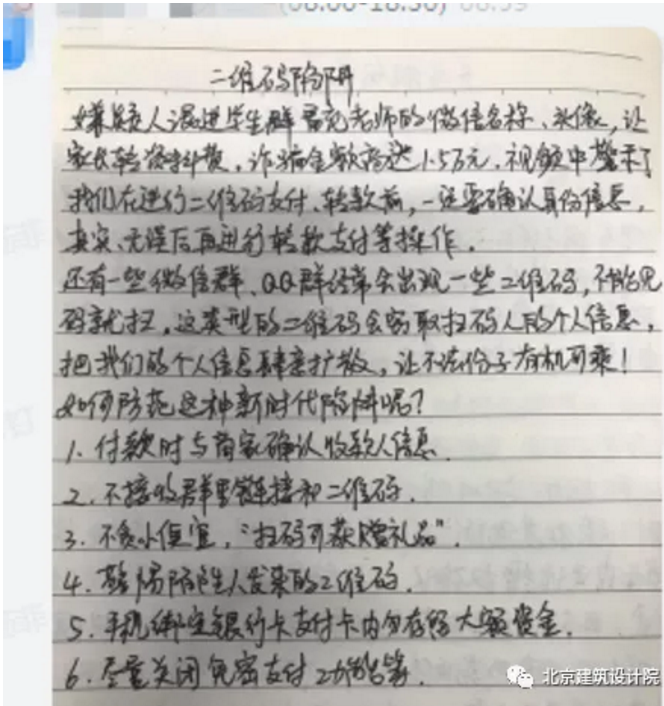 (08:00-18:30) 08:59
二维码陷阱
嫌疑人混进学生群冒充老师的微信名称、头像,让
家长转资料费,诈骗金额高达1.5万元,视频中警示了
我们在进行二维码支付、转款前,一定要确认身份信息,
真实、无误后再进行转款支付等操作.
还有一些微信群、QQ群经常会出现一些二维码,不能见
码就扫,这类型的二维码会窃取扫码人的个人信息,
把我们的个人信息肆意扩散,让不法份子有机可乘!
如何防范这种新时代陷阱呢?
1.付款时与商家确认收款人信息.
2.不接收群里链接和二维码.
3.不贪小便宜,“扫码可获赠礼品”.
4.警惕陌生人发来的二维码.
5.手机绑定银行卡支付卡内勿存留大额资金.
6.尽量关闭免密支付功能等.
北京建筑设计院